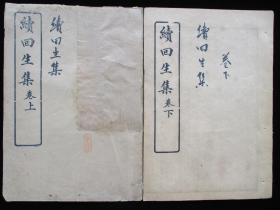 續回生集卷上
續回生集
續回生集卷下
續回生集
卷下